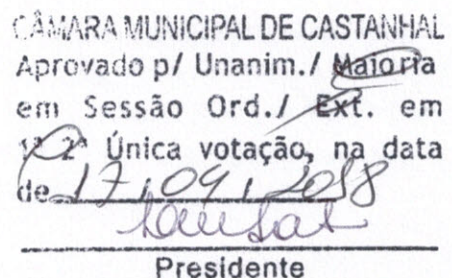 CÂMARA MUNICIPAL DE CASTANHAL
Aprovado p/ Unanim./ Maioria
em Sessão Ord./ Ext. em
1ª 2ª Única votação, na data
de 17, 09, 2018
Presidente